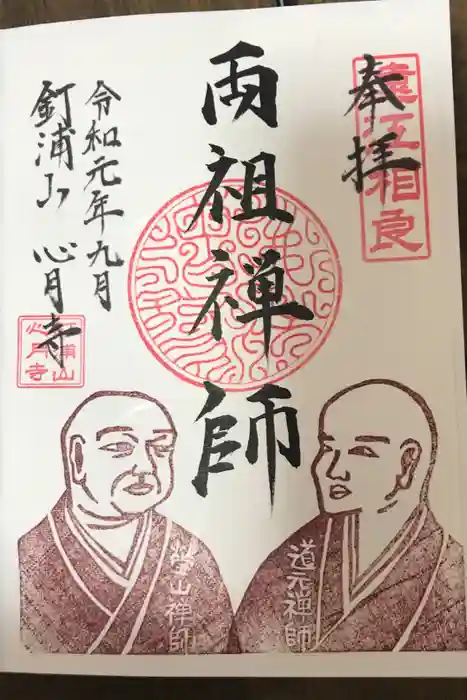 奉拝
遠江相良
両祖禅師
令和元年九月
釘浦山 心月寺
心月寺
瑩山禅師
道元禅師